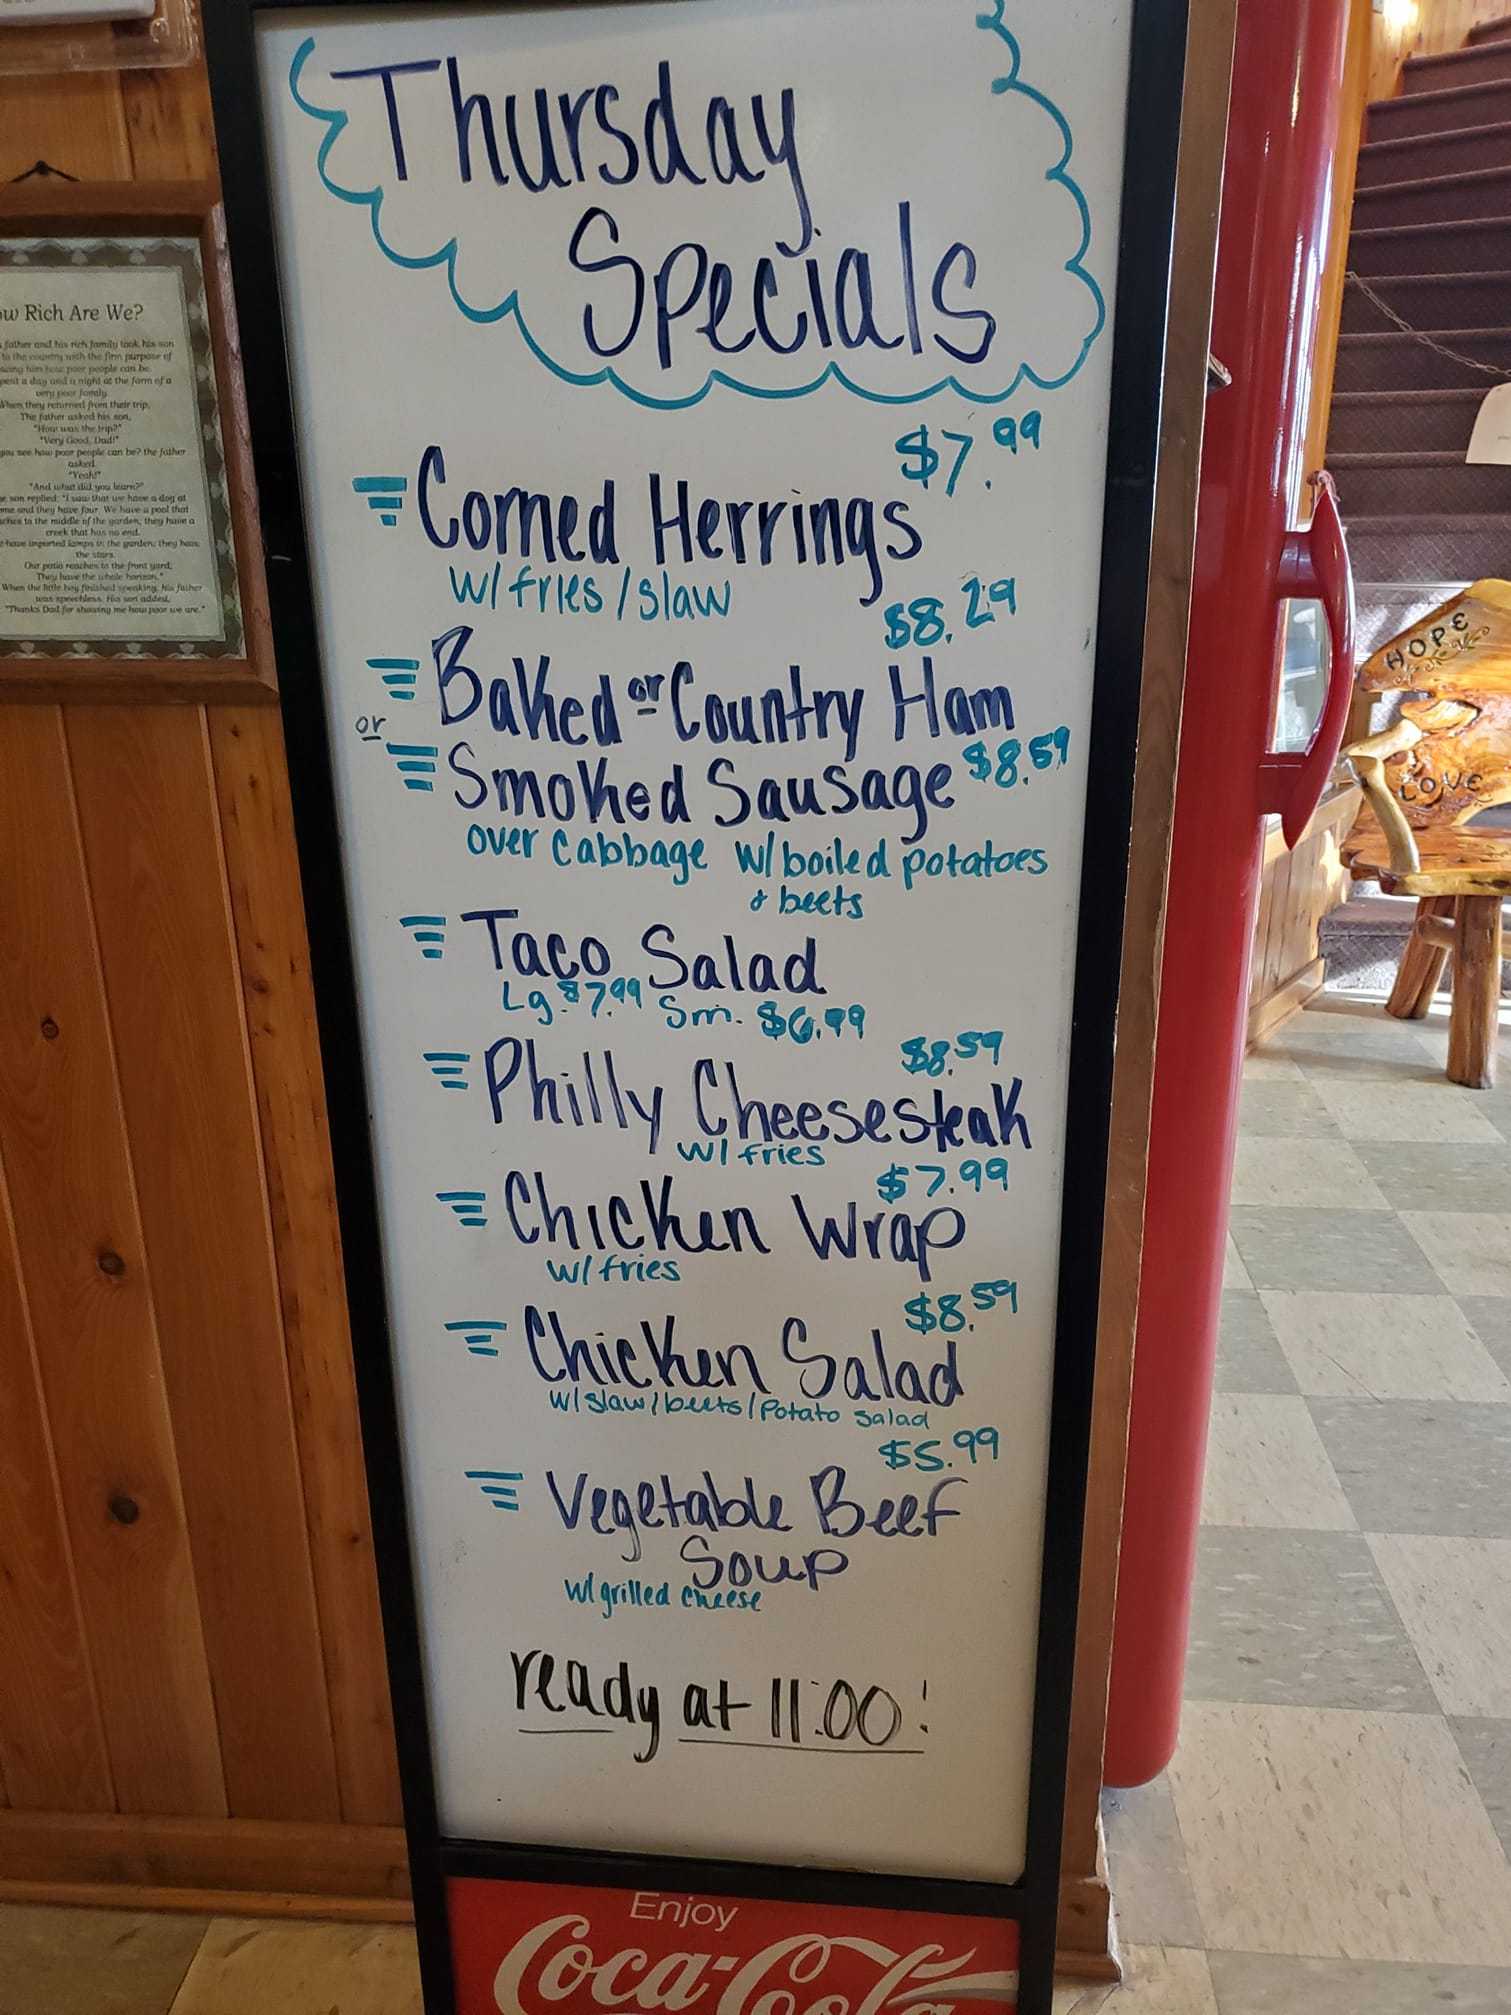 Thursday
Specials
$7.99
Corned Herrings
w/fries/slaw
$8.29
Baked or Country Ham
or
Smoked Sausage $8.59
over cabbage w/boiled potatoes
& beets
Taco Salad
Lg. $7.99 Sm. $6.99
$8.59
Philly Cheesesteak
w/fries
$7.99
Chicken Wrap
w/fries
$8.59
Chicken Salad
w/slaw/beets/potato salad
$5.99
Vegetable Beef
Soup
w/grilled cheese
ready at 11:00!
Enjoy
Coca-Cola
Rich Are We?
father and his rich family took his son
to the country with the firm purpose of
him how poor people can be.
a day and a night at the farm of a
very poor family.
When they returned from their trip,
The father asked his son,
"How was the trip?"
"Very Good, Dad!"
you see how poor people can be? the father
asked.
"Yeah!"
"And what did you learn?"
son replied: "I saw that we have a dog at
and they have four. We have a pool that
to the middle of the garden; they have a
creek that has no end.
have imported lamps in the garden; they have
the stars.
Our patio reaches to the front yard,
They have the whole horizon."
When the little boy finished speaking, his father
was speechless. His son added,
"Thanks Dad for showing me how poor we are."
HOPE
LOVE